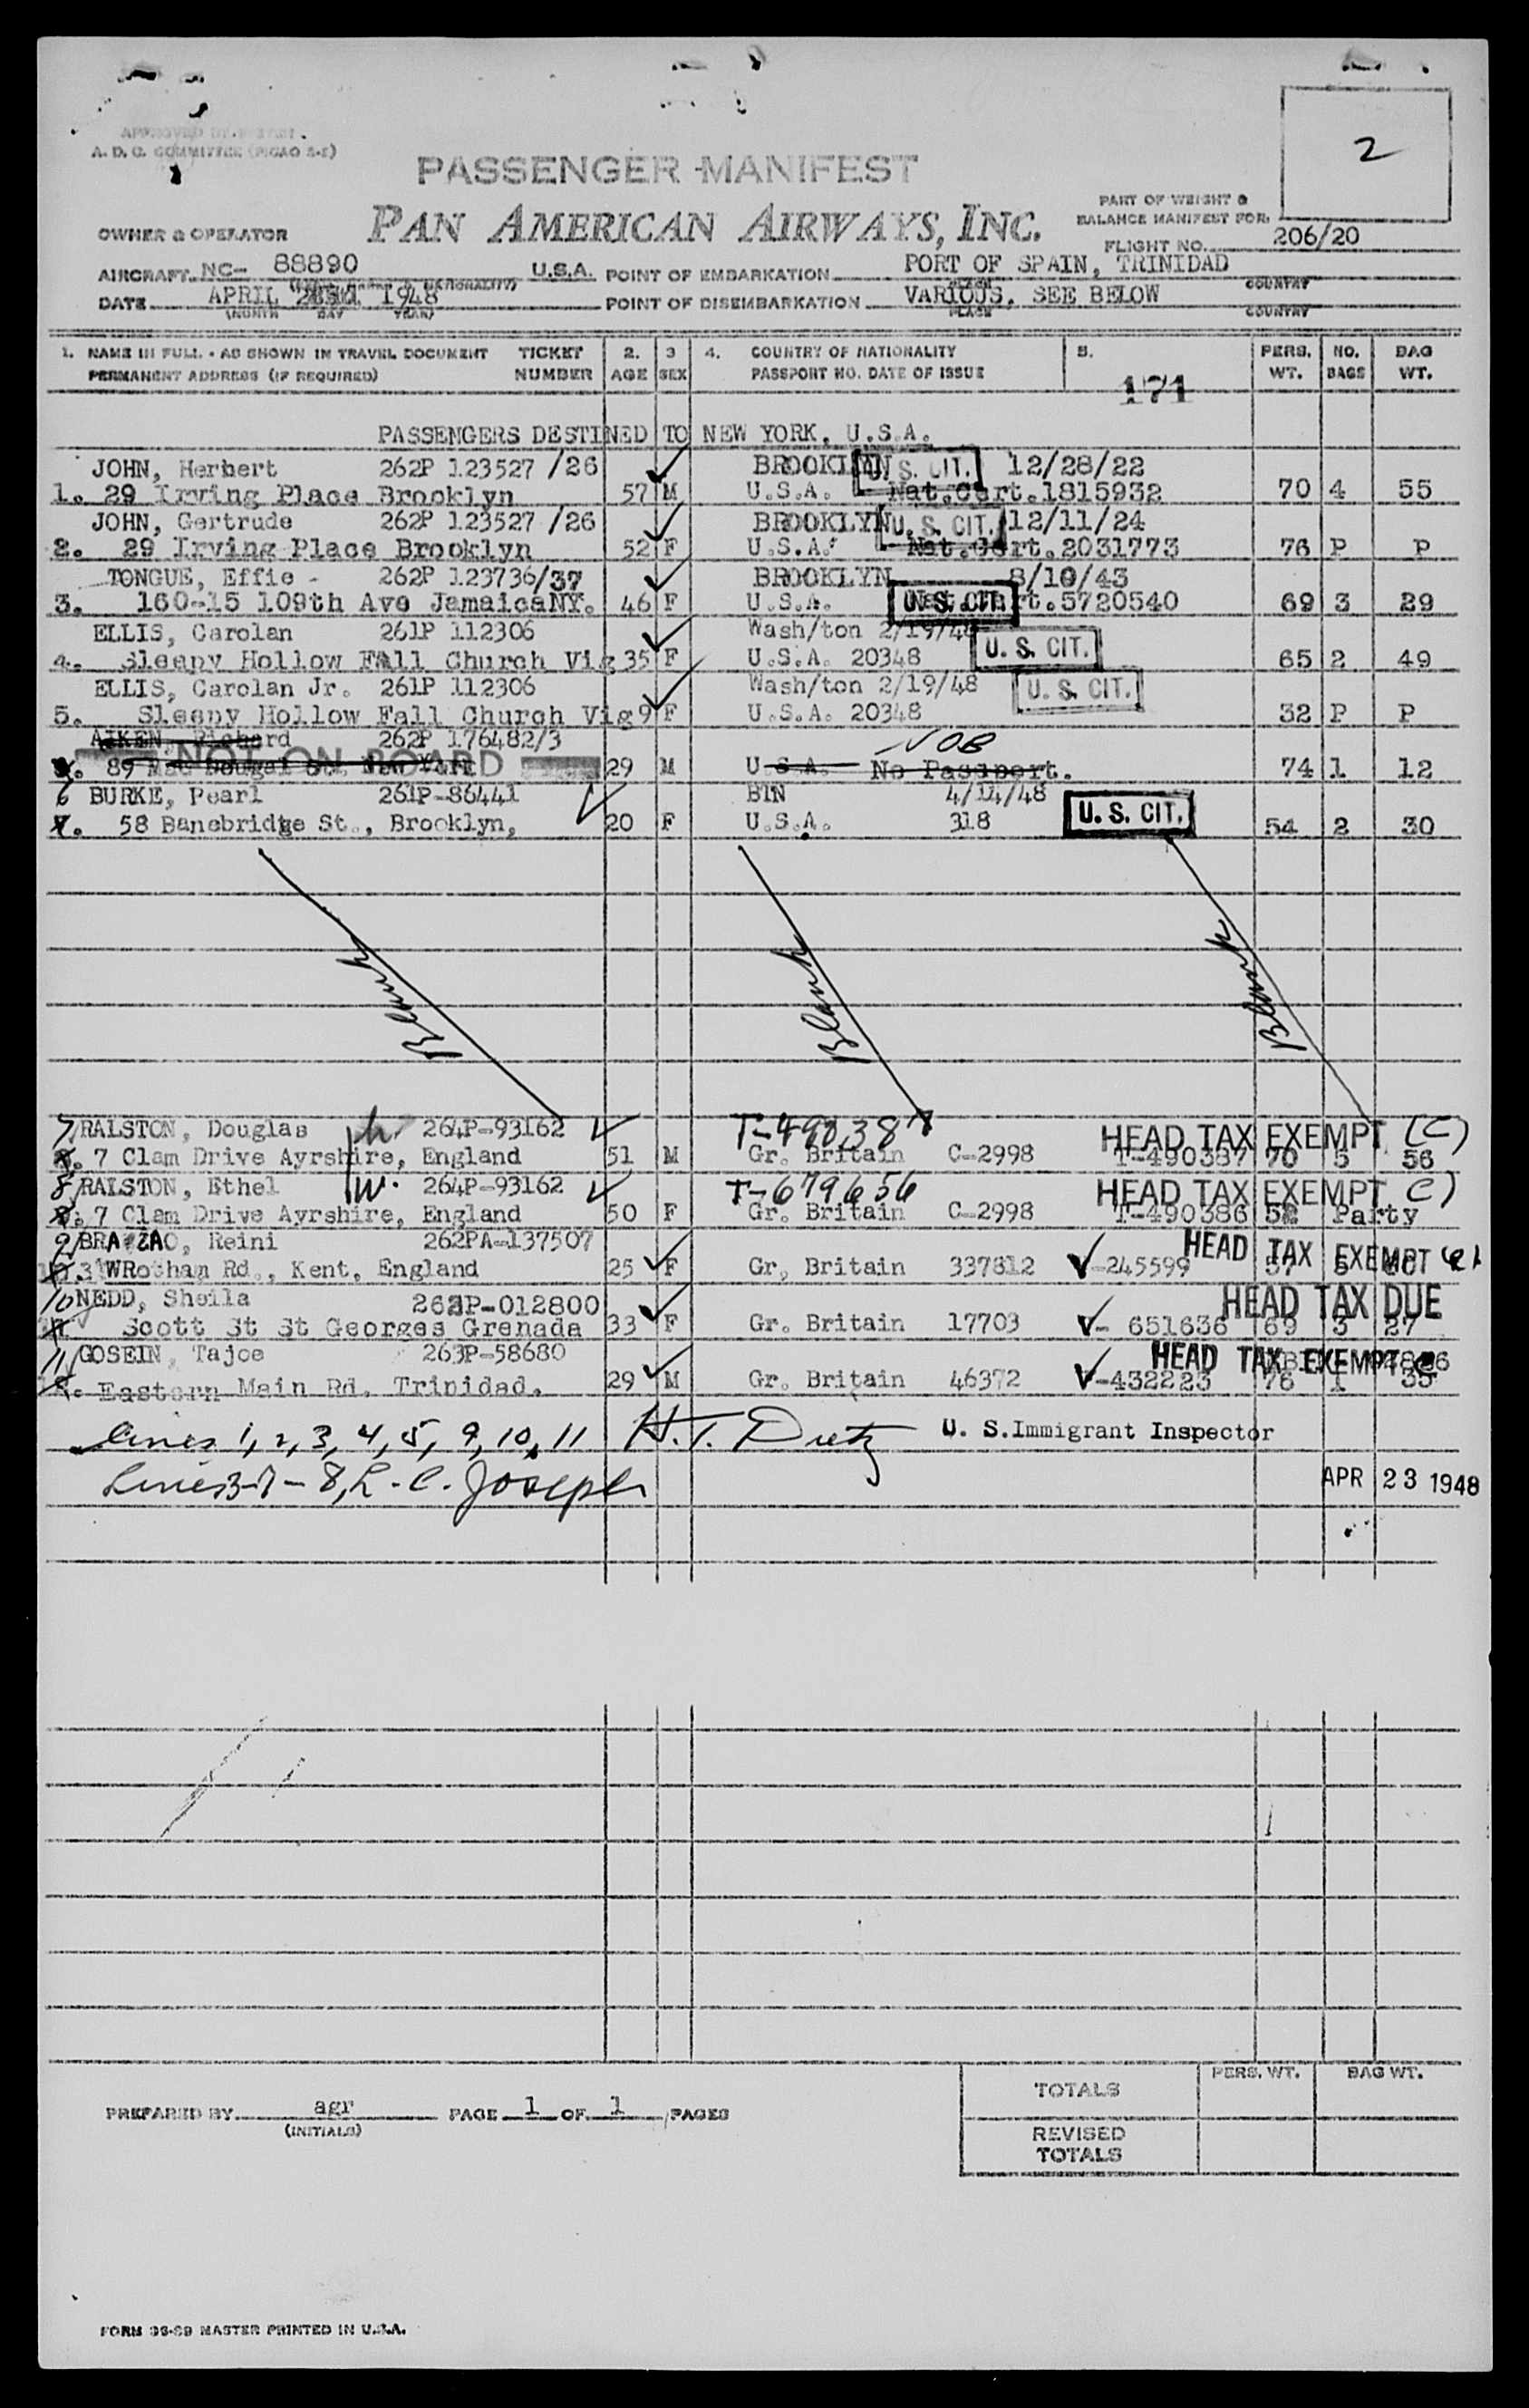 2
A. D. C. COMMITTEE (PICAO 2-2)
PASSENGER MANIFEST
PART OF WEIGHT &
BALANCE MANIFEST FOR:
OWNER & OPERATOR PAN AMERICAN AIRWAYS, INC. FLIGHT NO. 206/20
AIRCRAFT NC- 88890 U.S.A. POINT OF EMBARKATION PORT OF SPAIN, TRINIDAD
COUNTRY
DATE APRIL 1948 POINT OF DISEMBARKATION VARIOUS, SEE BELOW
(MONTH DAY YEAR) PLACE COUNTRY
1. NAME IN FULL - AS SHOWN IN TRAVEL DOCUMENT TICKET 2. 3 4. COUNTRY OF NATIONALITY 5. PERS. NO. BAG
PERMANENT ADDRESS (IF REQUIRED) NUMBER AGE SEX PASSPORT NO. DATE OF ISSUE WT. BAGS WT.
171
PASSENGERS DESTINED TO NEW YORK, U.S.A.
JOHN, Herbert 262P 123527 /26 BROOKLYN U. S. CIT. 12/28/22
1. 29 Irving Place Brooklyn 57 M U.S.A. Nat.Cert.1815932 70 4 55
JOHN, Gertrude 262P 123527 /26 BROOKLYN U. S. CIT. 12/11/24
2. 29 Irving Place Brooklyn 52 F U.S.A. Nat.Cert.2031773 76 P P
TONGUE, Effie - 262P 123736/37 BROOKLYN 8/10/43
3. 160-15 109th Ave JamaicaNY. 46 F U.S.A. U. S. CIT. rt.5720540 69 3 29
ELLIS, Carolan 261P 112306 Wash/ton 2/19/48
4. Sleepy Hollow Fall Church Vig 35 F U.S.A. 20348 U. S. CIT. 65 2 49
ELLIS, Carolan Jr. 261P 112306 Wash/ton 2/19/48 U. S. CIT.
5. Sleepy Hollow Fall Church Vig 9 F U.S.A. 20348 32 P P
AIKEN, Richard 262P 176482/3 NOB
NOT ON BOARD
89 Mac Dougal St. New York 29 M U.S.A. No Passport. 74 1 12
6 BURKE, Pearl 261P-86441 BIN 4/14/48
7. 58 Banebridge St., Brooklyn, 20 F U.S.A. 318 U. S. CIT. 54 2 30
Blank Blank Blank
7 RALSTON, Douglas h. 264P-93162 T-490387 HEAD TAX EXEMPT (C)
7 Clam Drive Ayrshire, England 51 M Gr. Britain C-2998 T-490387 70 5 56
8 RALSTON, Ethel w. 264P-93162 T-679656 HEAD TAX EXEMPT C)
7 Clam Drive Ayrshire, England 50 F Gr. Britain C-2998 T-490386 Party
9 BRAZAO, Reini 262PA-137507 HEAD TAX EXEMPT
31 WRotham Rd., Kent, England 25 F Gr, Britain 337812 V-245599 57
10 NEDD, Sheila 263P-012800 HEAD TAX DUE
Scott St St Georges Grenada 33 F Gr. Britain 17703 V- 651636 69 3 27
11 GOSEIN, Tajoe 263P-58680 HEAD TAX EXEMPT
Eastern Main Rd. Trinidad. 29 M Gr. Britain 46372 V-432223 76 1 35
Lines 1, 2, 3, 4, 5, 9, 10, 11 H. T. Dietz U. S. Immigrant Inspector
Lines 7-8, L. C. Joseph APR 23 1948
TOTALS PERS. WT. BAG WT.
PREPARED BY agr PAGE 1 OF 1 PAGES
(INITIALS)
REVISED
TOTALS
FORM 36-29 MASTER PRINTED IN U.S.A.